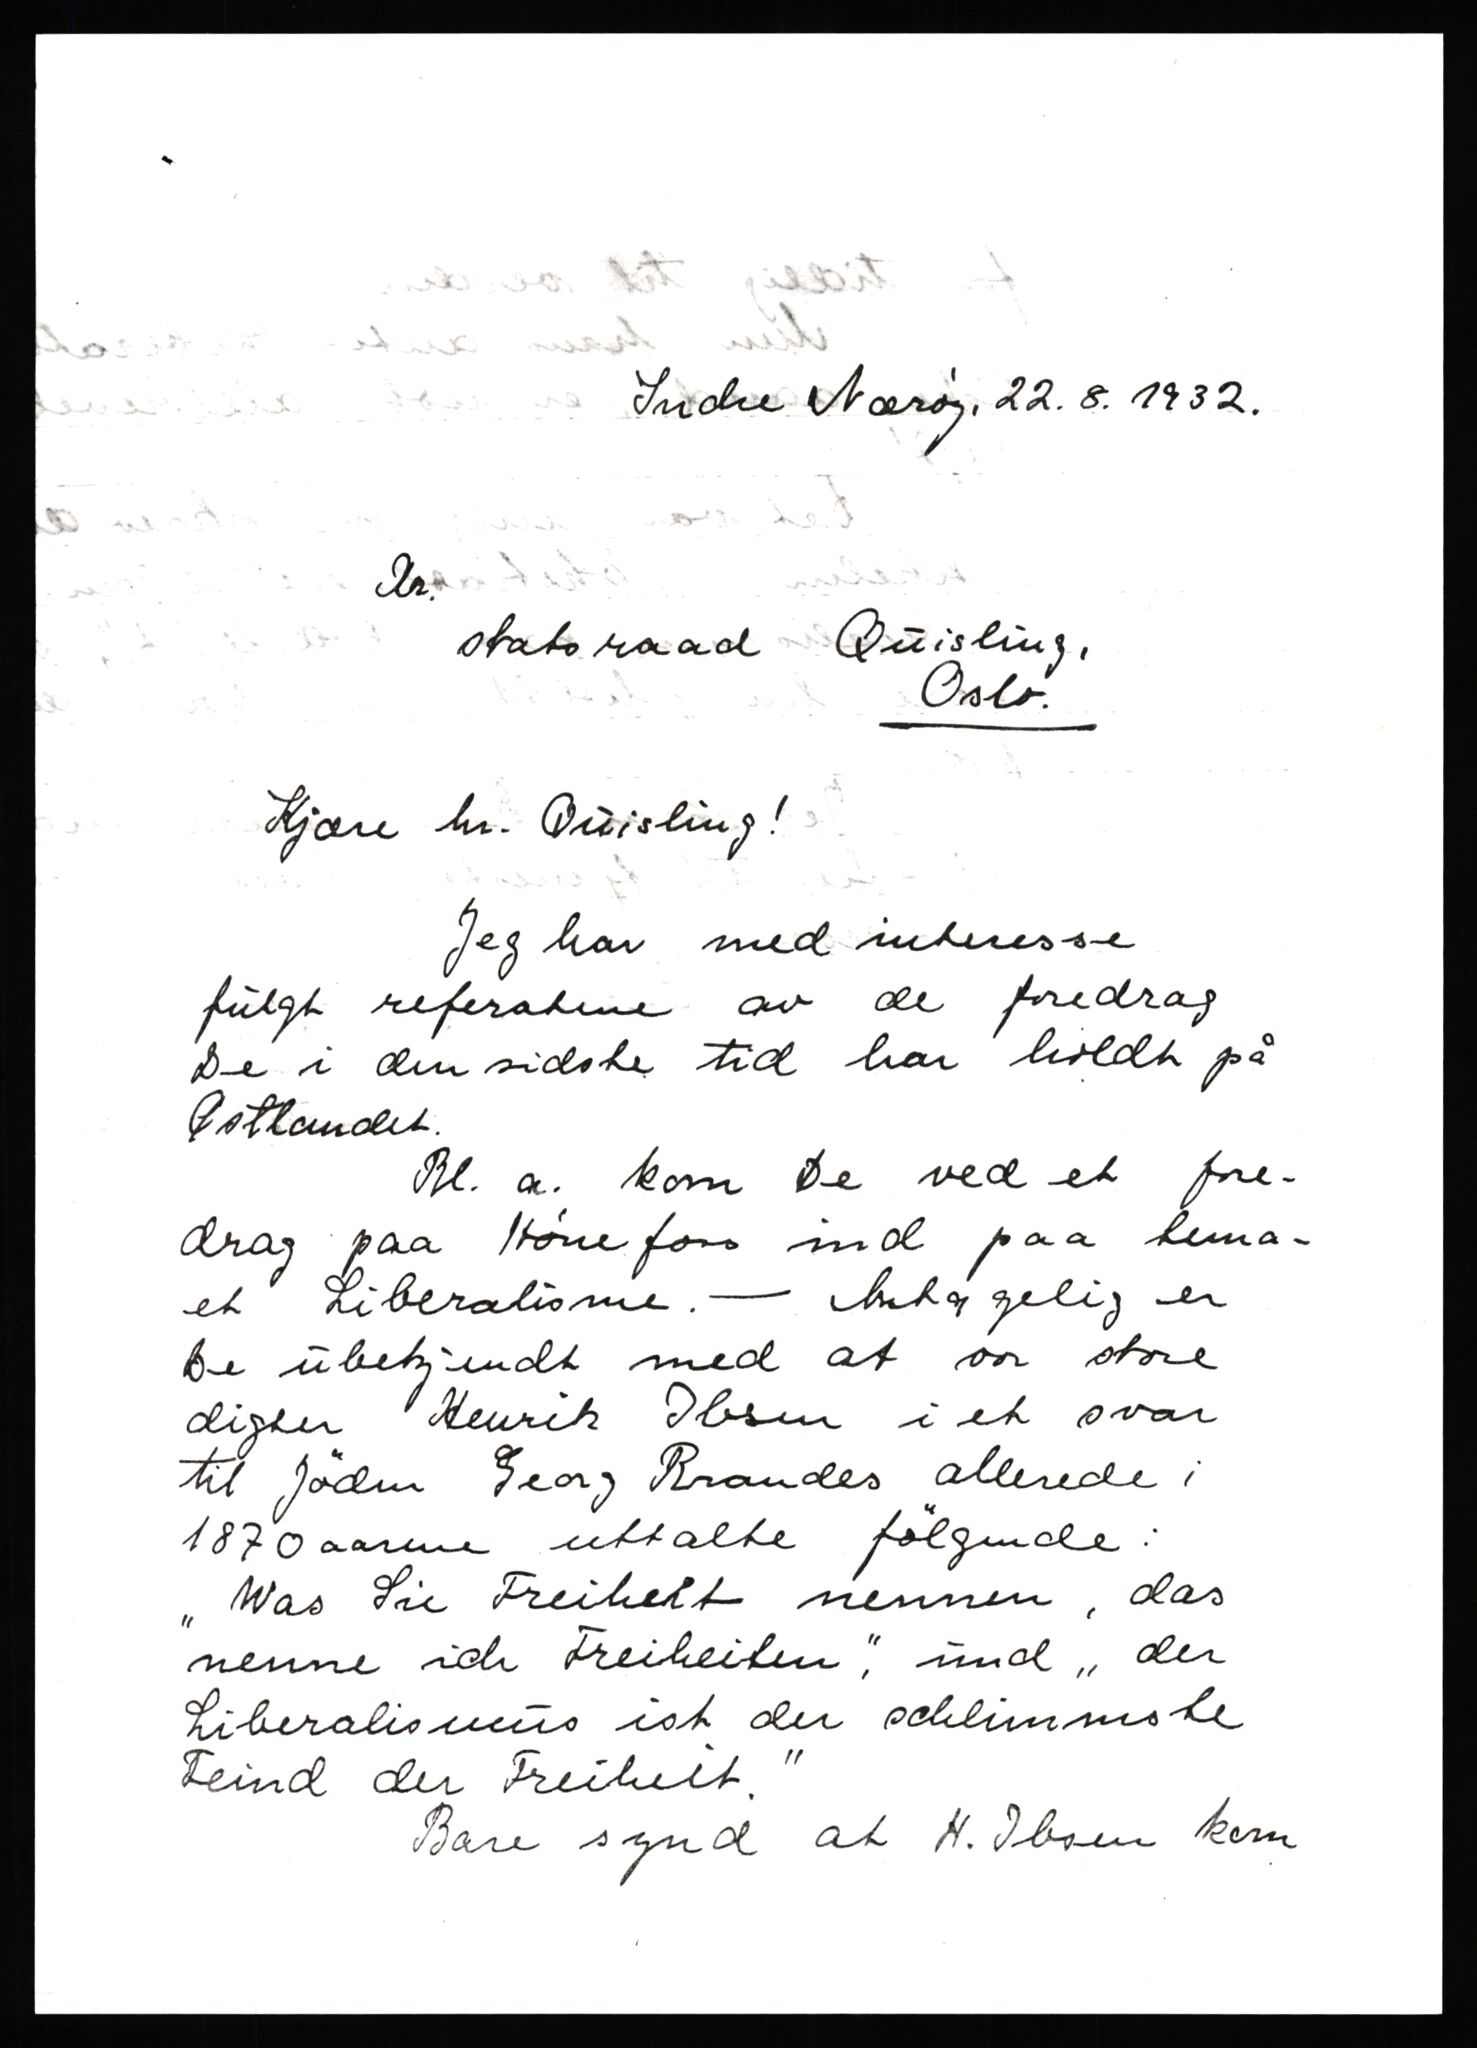 Indre Nærøy, 22. 8. 1932.
Hr.
statsraad Quisling,
Oslo.
Kjære hr. Quisling!
Jeg har med interesse
fulgt referatene av de foredrag
De i den sidste tid har holdt på
Østlandet.
Bl. a. kom De ved et fore-
drag paa Hönefoss ind paa tema-
et Liberalisme. — Antagelig er
De ubekjendt med at vor store
digter Henrik Ibsen i et svar
til Jöden Georg Brandes allerede i
1870 aarene uttalte fölgende:
„Was Sie Freiheit nennen, das
nenne ich Freiheiten", und „der
Liberalismus ist der schlimmste
Feind der Freiheit."
Bare synd at H. Ibsen kom